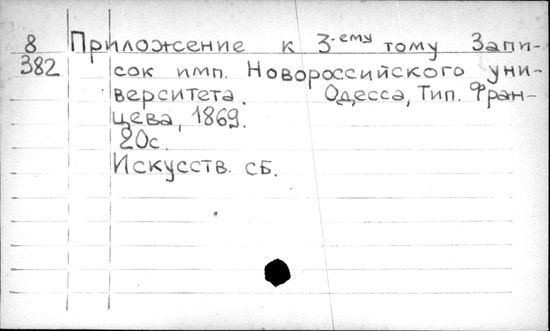 8 Приложение к 3-ему тому Запи-
382 сок имп. Новороссийского уни-
верситета. Одесса, Тип. Фран-
цева, 1869.
20с.
Искусств. сб.